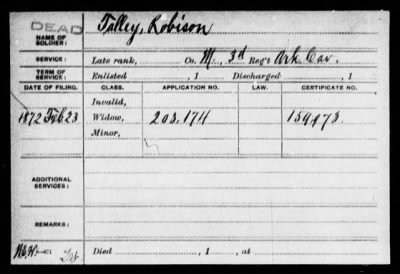 DEAD
NAME OF SOLDIER: Talley, Robison
SERVICE: Late rank, Co. M, 3d Reg't Ark Cav.
TERM OF SERVICE: Enlisted , 1 Discharged , 1
DATE OF FILING. CLASS. APPLICATION NO. LAW. CERTIFICATE NO.
Invalid,
1872 Feb 23 Widow, 203,174 159,973
Minor,
ADDITIONAL SERVICES:
REMARKS:
Died , 1 , at